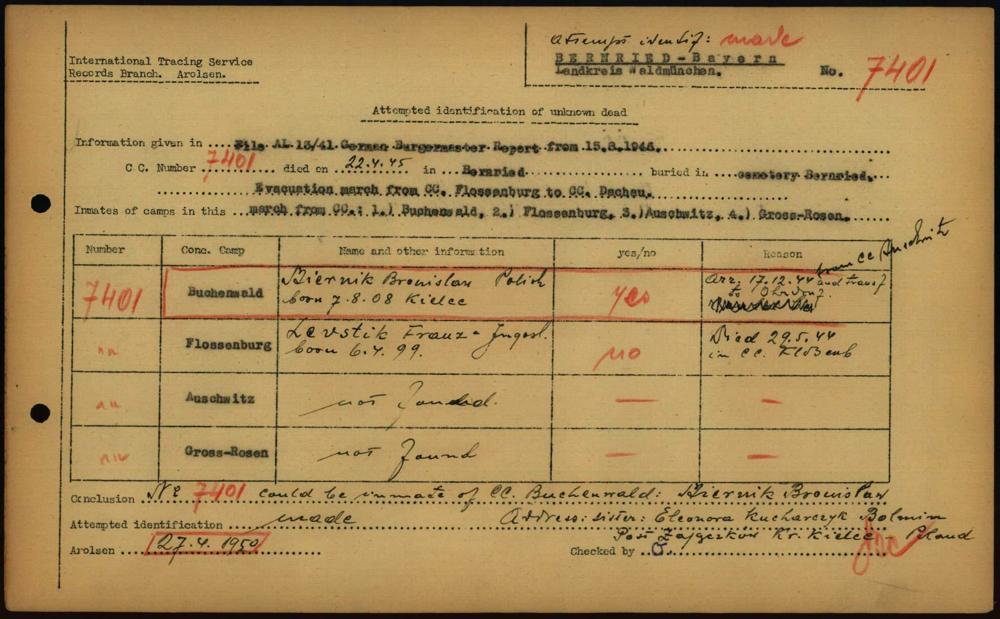 Attempt identif: made
International Tracing Service
Records Branch. Arolsen.
BERNRIED-Bayern
Landkreis Waldmünchen.
No. 7401
Attempted identification of unknown dead
Information given in ....File AL 13/41 German Burgermaster Report from 15.8.1946.
C C. Number 7401 died on 22.4.45 in Bernried buried in cemetery Bernried.
Evacuation march from CC. Flossenburg to CC. Dachau.
Inmates of camps in this march from CC.: 1.) Buchenwald, 2.) Flossenburg, 3.)Auschwitz, 4.) Gross-Rosen.
Number Conc. Camp Name and other information yes/no Reason
from CC Auschwitz
7401 Buchenwald Biernik Bronislaw Polish yes Arr. 17.12.44 and transf
born 7.8.08 Kielce to Ohrdruf.
" " Flossenburg Levstik Franz - Jugosl. no Died 29.5.44
born 6.4.99. in CC. Floßenb
" " Auschwitz not found. — —
" " Gross-Rosen not found — —
Conclusion No 7401 could be inmate of CC. Buchenwald: Biernik Bronislaw
Attempted identification made Address: sister: Eleonora Kucharczyk Bolmin
Post Zajączków Kr. Kielce - Poland
Arolsen 27.4.1950 Checked by